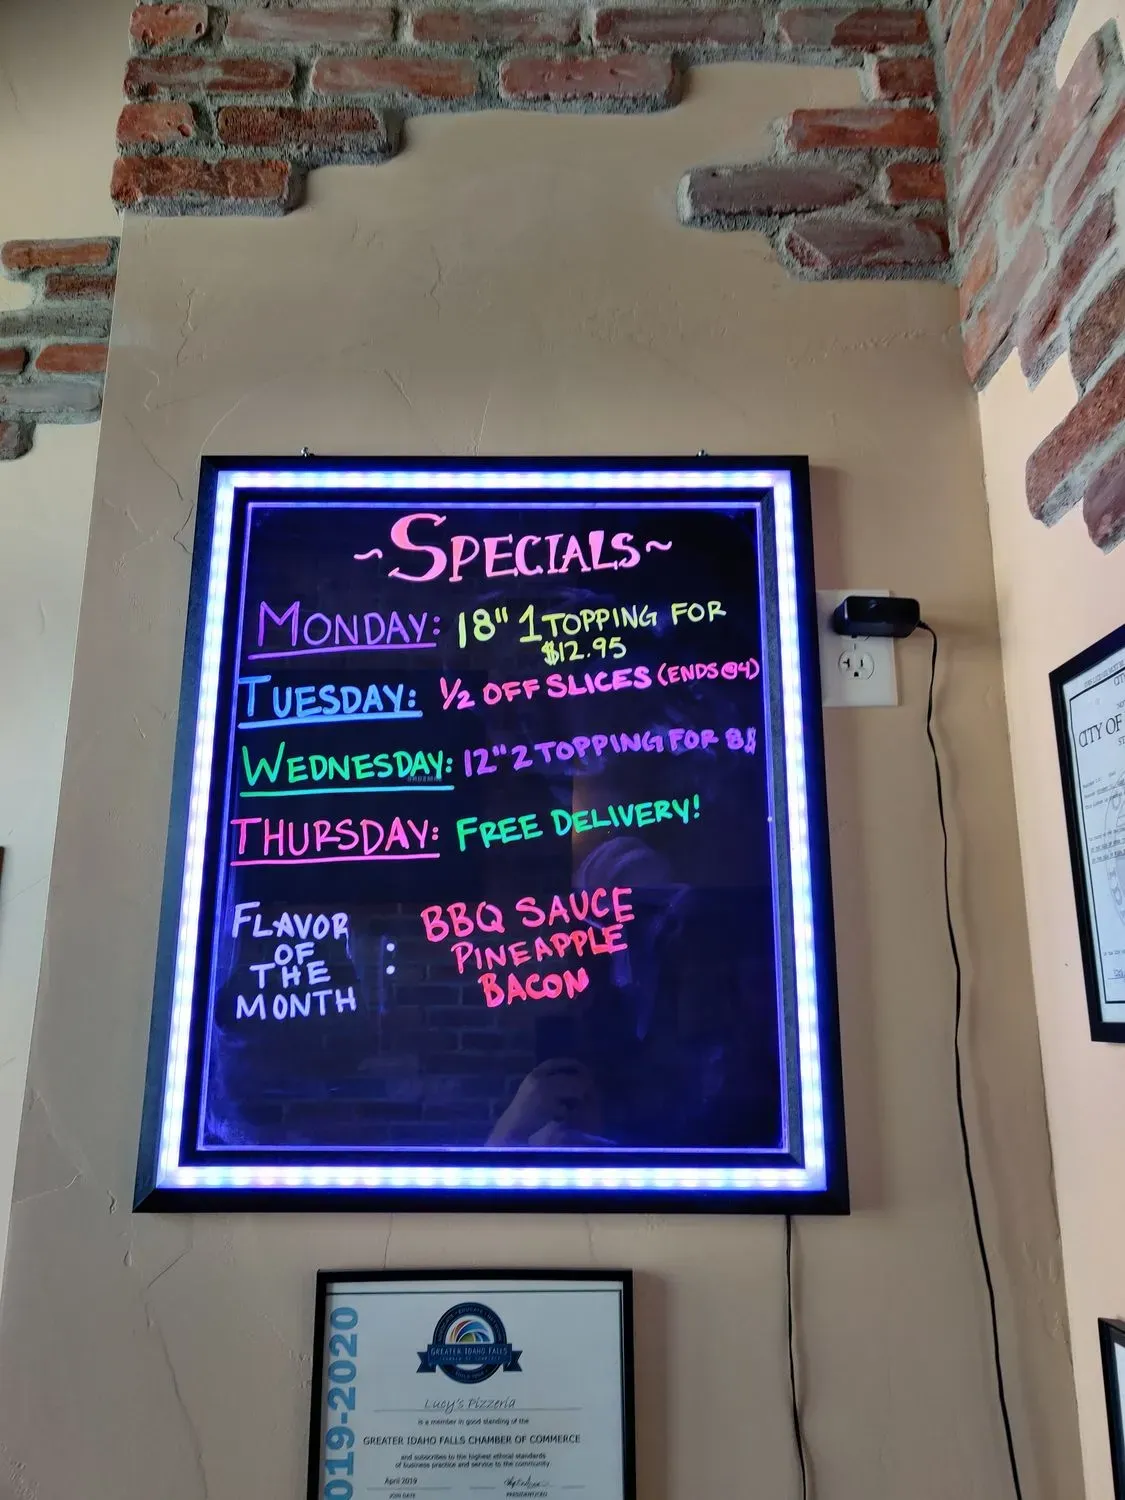 ~SPECIALS~
MONDAY: 18" 1 TOPPING FOR
$12.95
TUESDAY: 1/2 OFF SLICES (ENDS @4)
WEDNESDAY: 12" 2 TOPPING FOR 8$
THURSDAY: FREE DELIVERY!
FLAVOR OF THE MONTH :
BBQ SAUCE
PINEAPPLE
BACON
CITY OF
2019-2020
GREATER IDAHO FALLS
CHAMBER OF COMMERCE
Lucy's Pizzeria
is a member in good standing of the
GREATER IDAHO FALLS CHAMBER OF COMMERCE
and subscribes to the highest ethical standards
of business practice and service to the community.
April 2019
JOIN DATE
PRESIDENT/CEO